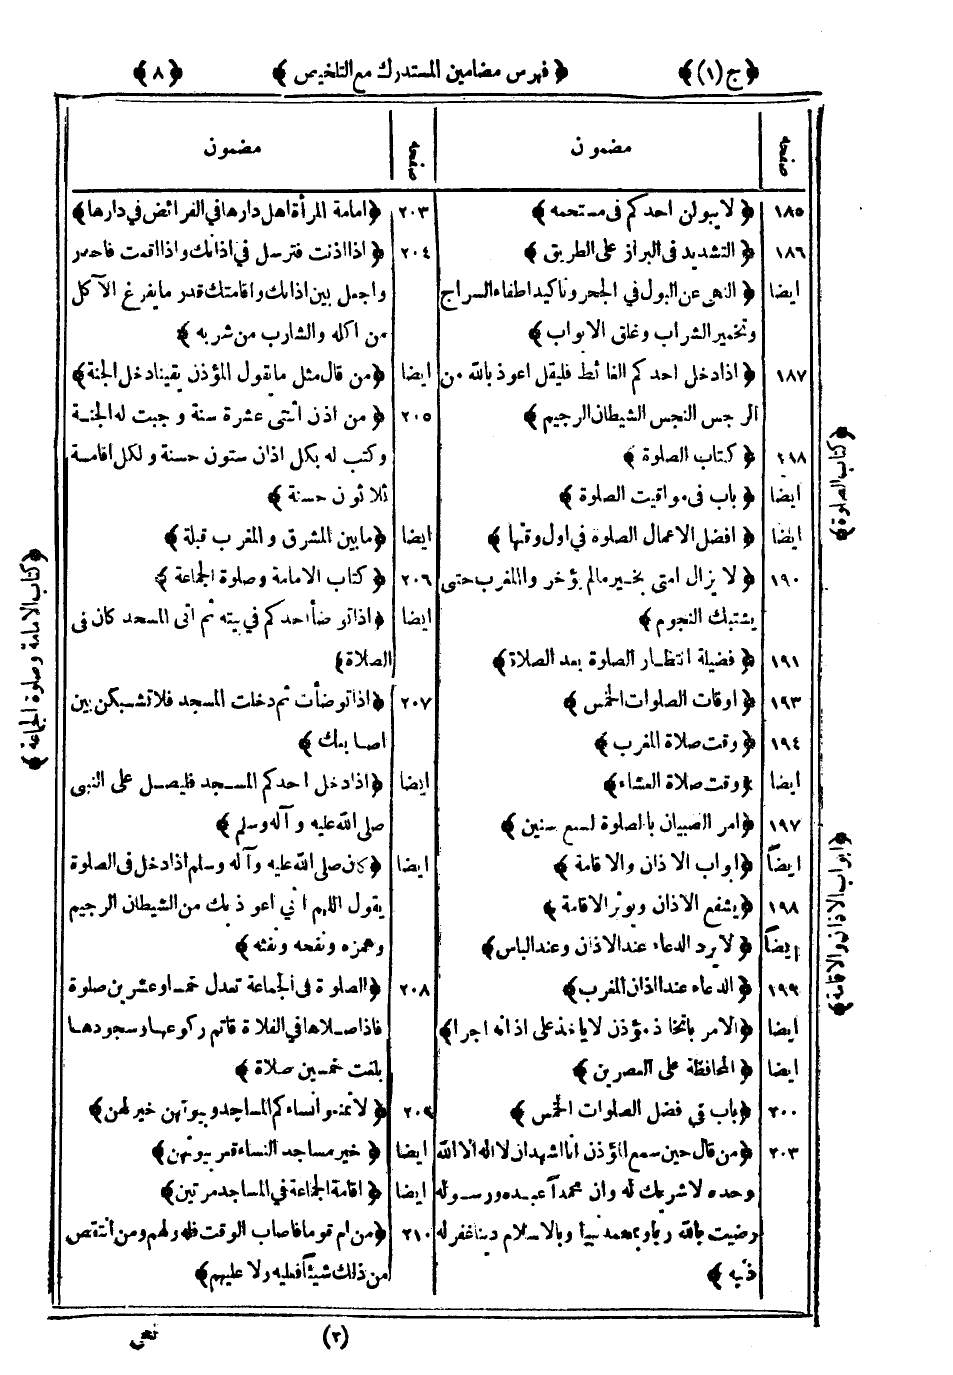 ﴿ج(١)﴾ ﴿فهرس مضامين المستدرك مع التلخيص﴾ ﴿٨﴾
صفحه مضمون
١٨٥ ﴿لا يبولن احدكم فى مستحمه﴾
١٨٦ ﴿التشديد فى البراز على الطريق﴾
ايضا ﴿النهى عن البول في الجحر وتاكيد اطفاء السراج
وتخمير الشراب وغلق الابواب﴾
١٨٧ ﴿اذا دخل احدكم الغائط فليقل اعوذ بالله من
الرجس النجس الشيطان الرجيم﴾
٢١٨ ﴿كتاب الصلوة﴾
ايضا ﴿باب فى مواقيت الصلوة﴾
ايضا ﴿افضل الاعمال الصلوة في اول وقتها﴾
١٩٠ ﴿لا يزال امتى بخير مالم يؤخر والمغرب حتى
يشتبك النجوم﴾
١٩١ ﴿فضيلة انتظار الصلوة بعد الصلاة﴾
١٩٣ ﴿اوقات الصلوات الخمس﴾
١٩٤ ﴿وقت صلاة المغرب﴾
ايضا ﴿وقت صلاة العشاء﴾
١٩٧ ﴿امر الصبيان بالصلوة لسبع سنين﴾
ايضاً ﴿ابواب الاذان والاقامة﴾
١٩٨ ﴿يشفع الاذان ويوتر الاقامة﴾
ايضاً ﴿لا يرد الدعاء عند الاذان وعند الباس﴾
١٩٩ ﴿الدعاء عند اذان المغرب﴾
ايضا ﴿الامر باتخاذ مؤذن لا ياخذ على اذانه اجرا﴾
ايضا ﴿المحافظة على العصرين﴾
٢٠٠ ﴿باب في فضل الصلوات الخمس﴾
٢٠٣ ﴿من قال حين سمع المؤذن انا اشهد ان لا اله الا الله
وحده لا شريك له وان محمداً عبده ورسوله
رضيت بالله ربا وبمحمد نبيا وبالاسلام دينا غفر له
ذنبه﴾
صفحه مضمون
٢٠٣ ﴿امامة المرأة اهل دارها في الفرائض في دارها﴾
٢٠٤ ﴿اذا اذنت فترسل في اذانك واذا اقمت فاحدر
واجعل بين اذانك واقامتك قدر ما يفرغ الآكل
من اكله والشارب من شربه﴾
ايضا ﴿من قال مثل ما يقول المؤذن يقينا دخل الجنة﴾
٢٠٥ ﴿من اذن اثنتى عشرة سنة وجبت له الجنة
وكتب له بكل اذان ستون حسنة ولكل اقامة
ثلاثون حسنة﴾
ايضا ﴿ما بين المشرق والمغرب قبلة﴾
٢٠٦ ﴿كتاب الامامة وصلوة الجماعة﴾
ايضا ﴿اذا توضأ احدكم في بيته ثم اتى المسجد كان فى
الصلاة﴾
٢٠٧ ﴿اذا توضأت ثم دخلت المسجد فلا تشبكن بين
اصابعك﴾
ايضا ﴿اذا دخل احدكم المسجد فليصل على النبى
صلى الله عليه وآله وسلم﴾
ايضا ﴿كان صلى الله عليه وآله وسلم اذا دخل فى الصلوة
يقول اللهم انى اعوذ بك من الشيطان الرجيم
وهمزه ونفخه ونفثه﴾
٢٠٨ ﴿الصلوة فى الجماعة تعدل خمسا وعشرين صلوة
فاذا صلاها في الفلاة فاتم ركوعها وسجودها
بلغت خمسين صلاة﴾
٢٠٩ ﴿لا تمنعوا نساءكم المساجد وبيوتهن خير لهن﴾
ايضا ﴿خير مساجد النساء قعر بيوتهن﴾
ايضا ﴿اقامة الجماعة في المساجد مرتين﴾
٢١٠ ﴿من ام قوما فاصاب الوقت فله ولهم ومن انتقص
من ذلك شيئاً فعليه ولا عليهم﴾
﴿كتاب الصلوة﴾
﴿ابواب الاذان والاقامة﴾
﴿كتاب الامامة وصلوة الجماعة﴾
(٣)